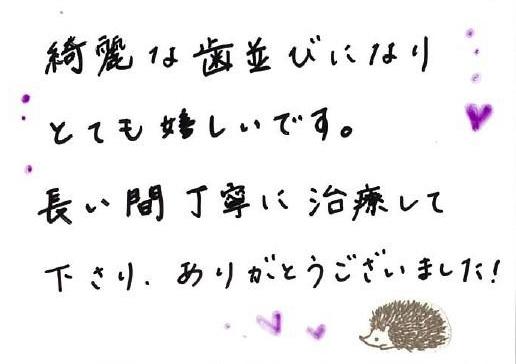 綺麗な歯並びになり
とても嬉しいです。
長い間丁寧に治療して
下さり、ありがとうございました!